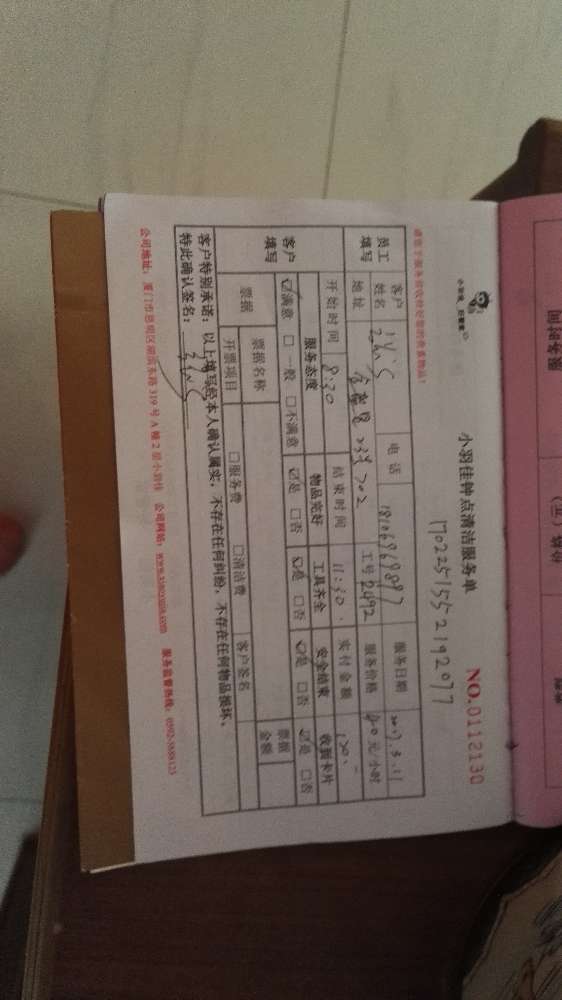 请您于服务前收好您的贵重物品！
小羽佳钟点清洁服务单
NO.0112130
1702251552192077
员工填写
客户姓名
电话
18106969897
服务日期
2017.3.11
地址
702
工号
2492
服务价格
40元/小时
开始时间
8:30
结束时间
11:30
实付金额
120.
客户填写
服务态度
物品完好
工具齐全
安全结束
收到卡片
☑满意 □一般 □不满意
☑是 □否
☑是 □否
☑是 □否
☑是 □否
票据
票据名称
客户签名
票据金额
开票项目
□服务费 □清洁费
客户特别承诺：以上填写经本人确认属实，不存在任何纠纷，不存在任何物品损坏，
特此确认签名：
公司地址：厦门市思明区湖滨东路319号A幢2层小羽佳 公司网站：www.xiaoyujia.com 服务监督热线：0592-3688123